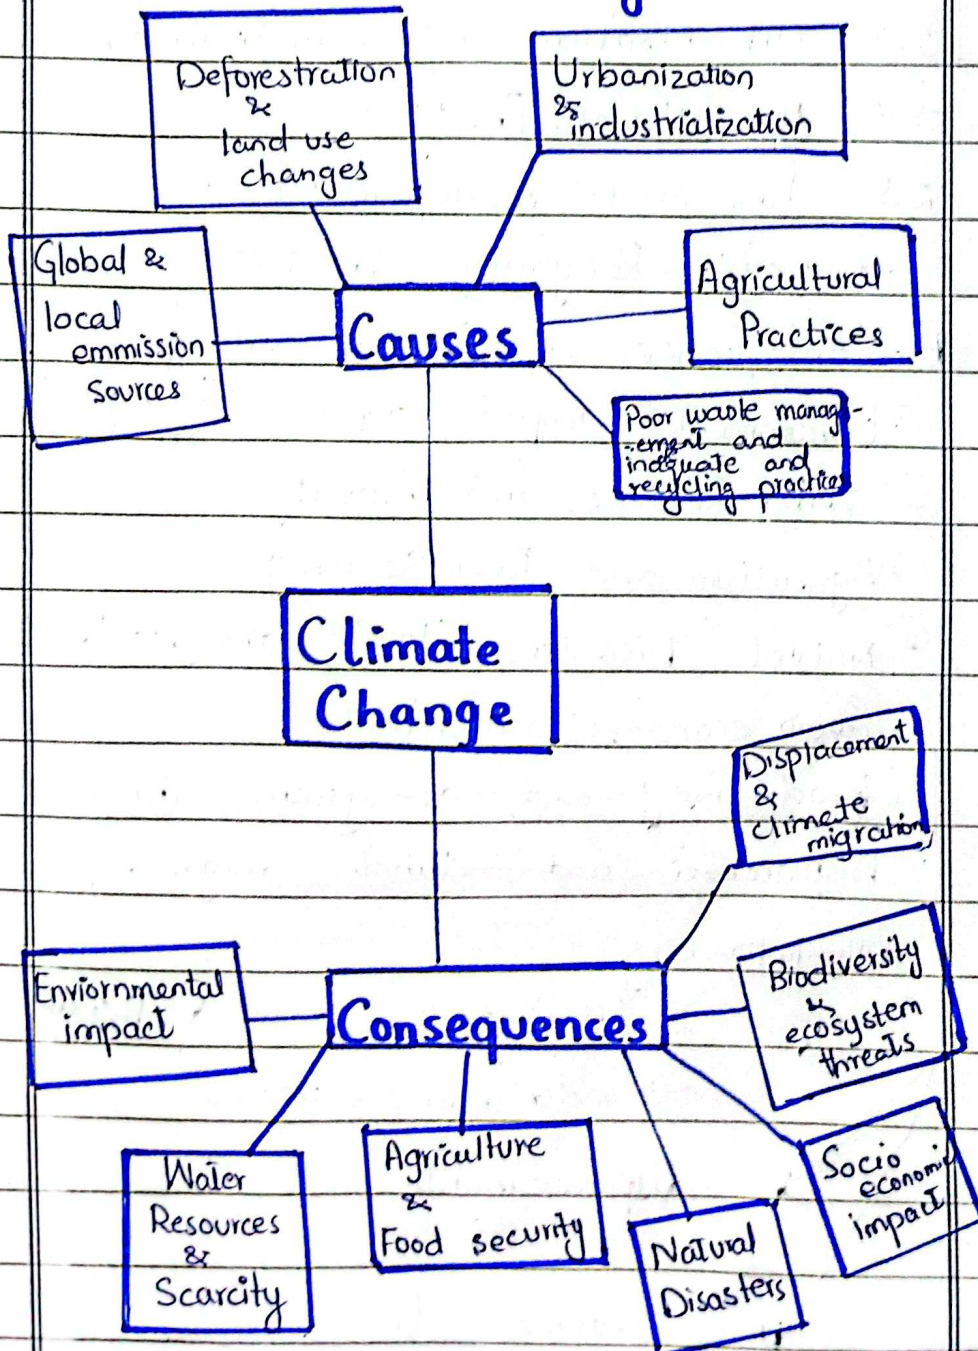 Deforestration
&
land use
changes
Urbanization
&
industrialization
Global &
local
emmission
Sources
Causes
Agricultural
Practices
Poor waste manag-
-ement and
inadquate and
recycling practices
Climate
Change
Displacement
&
climate
migration
Enviornmental
impact
Consequences
Biodiversity
&
ecosystem
threats
Water
Resources
&
Scarcity
Agriculture
&
Food security
Natural
Disasters
Socio
economic
impact